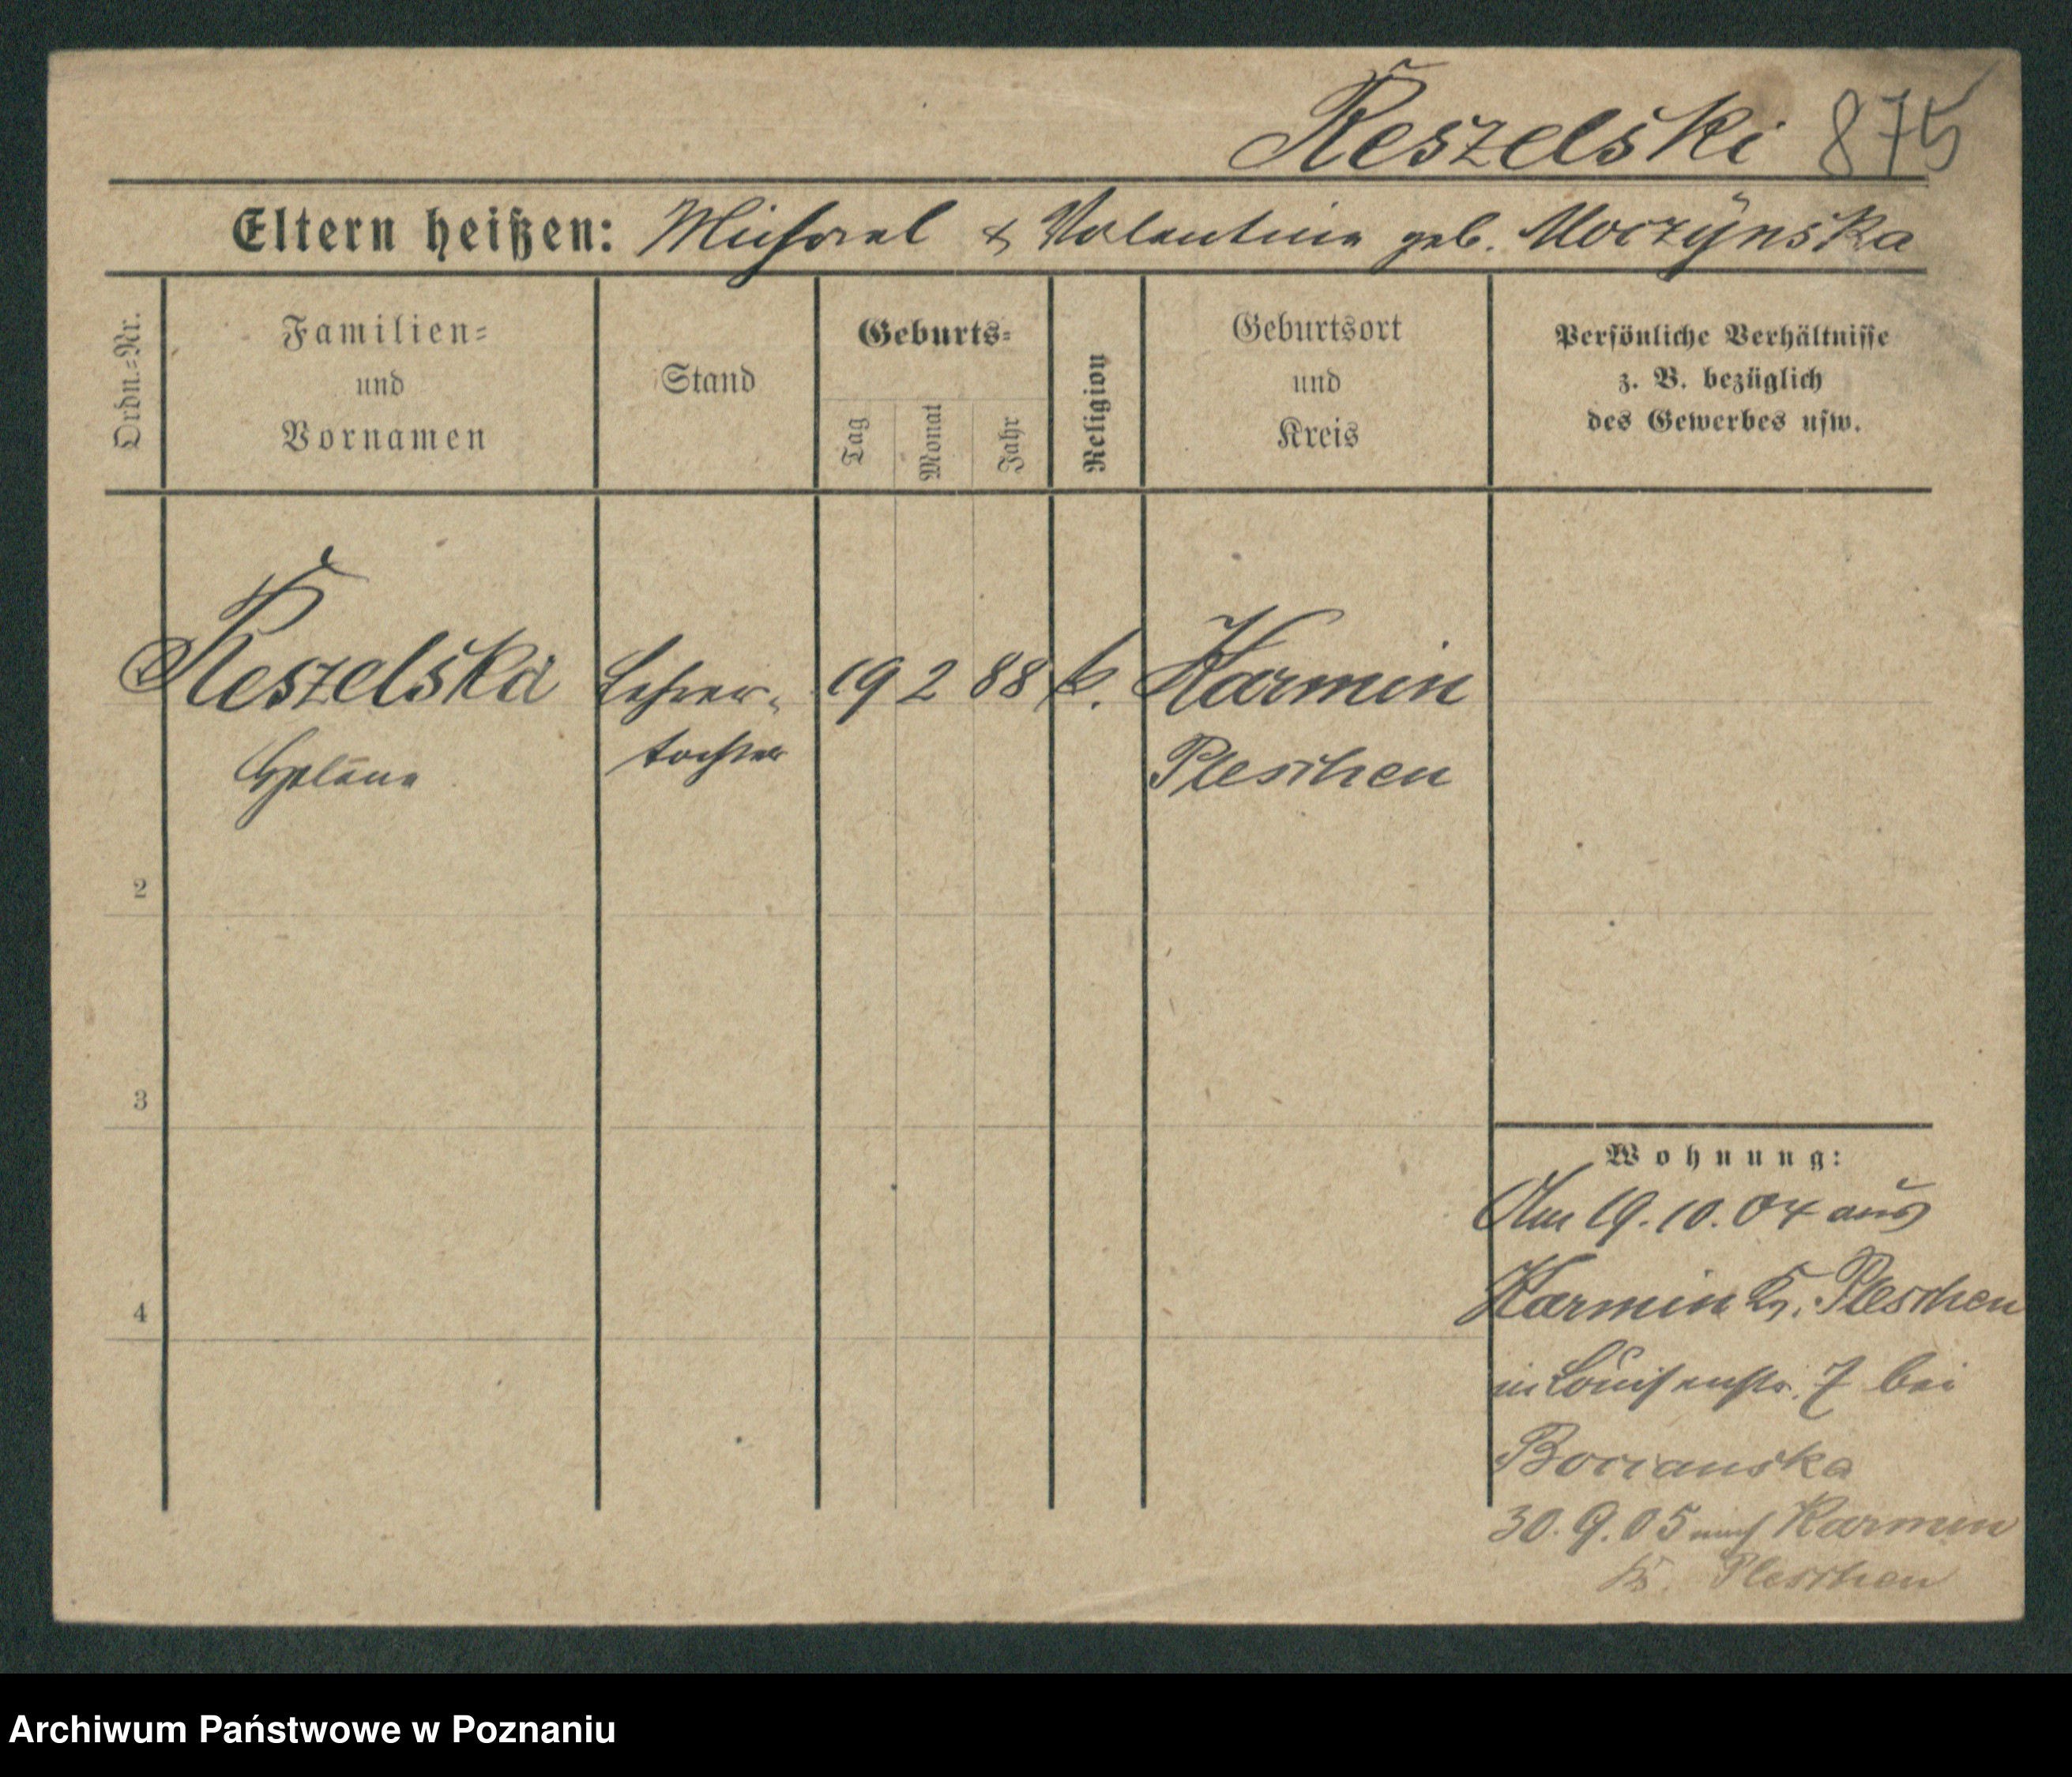 Reszelski 875
Eltern heißen: Michael & Valentine geb. Moczÿnska
Ordn.-Nr.
Familien-
und
Vornamen
Stand
Geburts-
Tag
Monat
Jahr
Religion
Geburtsort
und
Kreis
Persönliche Verhältnisse
z. B. bezüglich
des Gewerbes usw.
Reszelska Lehrer- 19 2 88 k. Karmin
Helene tochter Pleschen
2
3
4
Wohnung:
Am 19.10.04 aus
Karmin Kr. Pleschen
in Louisenstr. 7 bei
30.9.05 nach Karmin
Kr. Pleschen
Archiwum Państwowe w Poznaniu